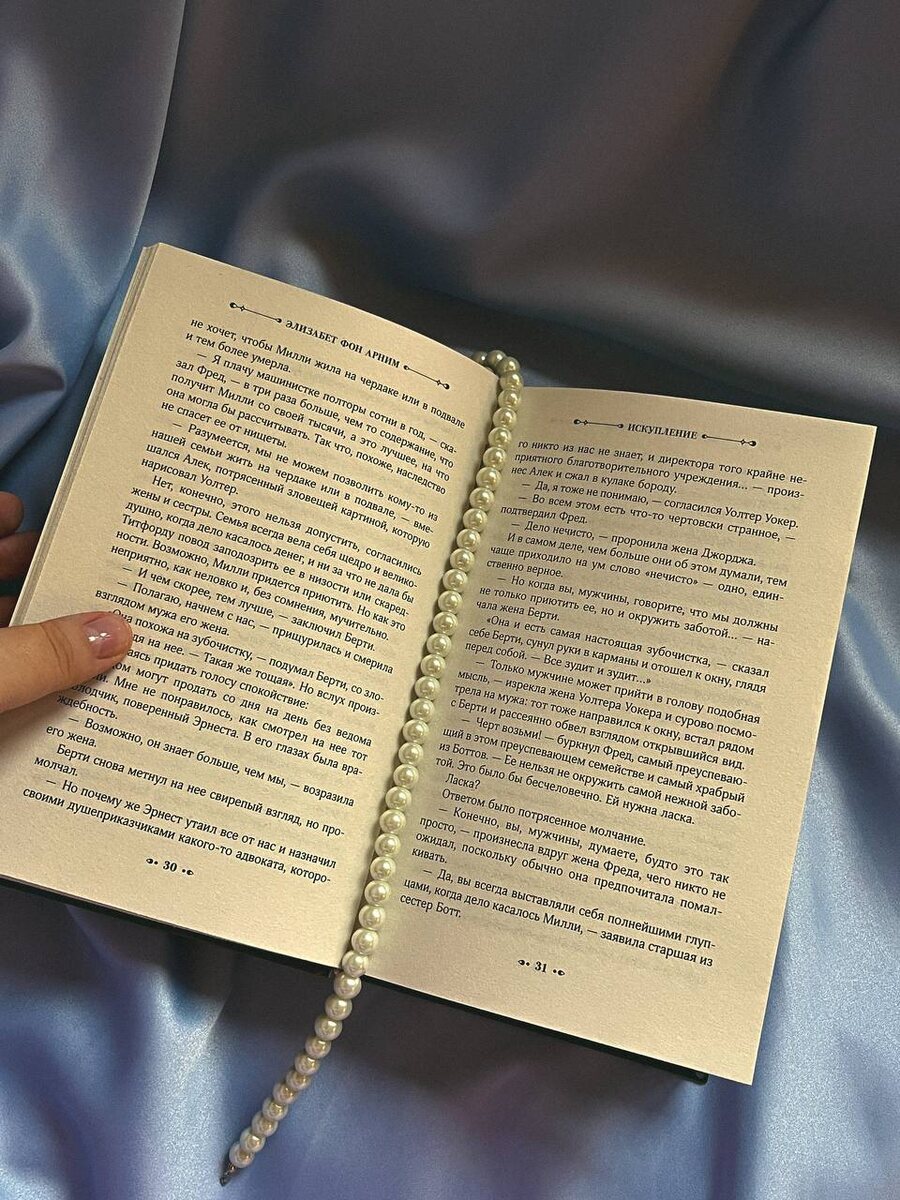 ЭЛИЗАБЕТ ФОН АРНИМ
не хочет, чтобы Милли жила на чердаке или в подвале
и тем более умерла.
— Я плачу машинистке полторы сотни в год, — ска-
зал Фред, — в три раза больше, чем то содержание, что
получит Милли со своей тысячи, а это лучшее, на что
она могла бы рассчитывать. Так что, похоже, наследство
не спасет ее от нищеты.
— Разумеется, мы не можем позволить кому-то из
нашей семьи жить на чердаке или в подвале, — вме-
шался Алек, потрясенный зловещей картиной, которую
нарисовал Уолтер.
Нет, конечно, этого нельзя допустить, согласились
жены и сестры. Семья всегда вела себя щедро и велико-
душно, когда дело касалось денег, и ни за что не дала бы
Титфорду повод заподозрить ее в низости или скаред-
ности. Возможно, Милли придется приютить. Но как это
неприятно, как неловко и, без сомнения, мучительно.
— И чем скорее, тем лучше, — заключил Берти.
— Полагаю, начнем с нас, — прищурилась и смерила
взглядом мужа его жена.
«Она похожа на зубочистку, — подумал Берти, со зло-
на нее. — Такая же тощая». Но вслух произ-
аясь придать голосу спокойствие:
дом могут продать со дня на день без ведома
Мне не понравилось, как смотрел на нее тот
молодчик, поверенный Эрнеста. В его глазах была вра-
ждебность.
— Возможно, он знает больше, чем мы, — возразила
его жена.
Берти снова метнул на нее свирепый взгляд, но про-
молчал.
— Но почему же Эрнест утаил все от нас и назначил
своими душеприказчиками какого-то адвоката, которо-
30
ИСКУПЛЕНИЕ
го никто из нас не знает, и директора того крайне не-
приятного благотворительного учреждения... — произ-
нес Алек и сжал в кулаке бороду.
— Да, я тоже не понимаю, — согласился Уолтер Уокер.
— Во всем этом есть что-то чертовски странное, —
подтвердил Фред.
— Дело нечисто, — проронила жена Джорджа.
И в самом деле, чем больше они об этом думали, тем
чаще приходило на ум слово «нечисто» — одно, един-
ственно верное.
— Но когда вы, мужчины, говорите, что мы должны
не только приютить ее, но и окружить заботой... — на-
чала жена Берти.
«Она и есть самая настоящая зубочистка, — сказал
себе Берти, сунул руки в карманы и отошел к окну, глядя
перед собой. — Все зудит и зудит...»
— Только мужчине может прийти в голову подобная
мысль, — изрекла жена Уолтера Уокера и сурово посмо-
трела на мужа: тот тоже направился к окну, встал рядом
с Берти и рассеянно обвел взглядом открывшийся вид.
— Черт возьми! — буркнул Фред, самый преуспеваю-
щий в этом преуспевающем семействе и самый храбрый
из Боттов. — Ее нельзя не окружить самой нежной забо-
той. Это было бы бесчеловечно. Ей нужна ласка.
Ласка?
Ответом было потрясенное молчание.
— Конечно, вы, мужчины, думаете, будто это так
просто, — произнесла вдруг жена Фреда, чего никто не
ожидал, поскольку обычно она предпочитала помал-
кивать.
— Да, вы всегда выставляли себя полнейшими глуп-
цами, когда дело касалось Милли, — заявила старшая из
сестер Ботт.
31